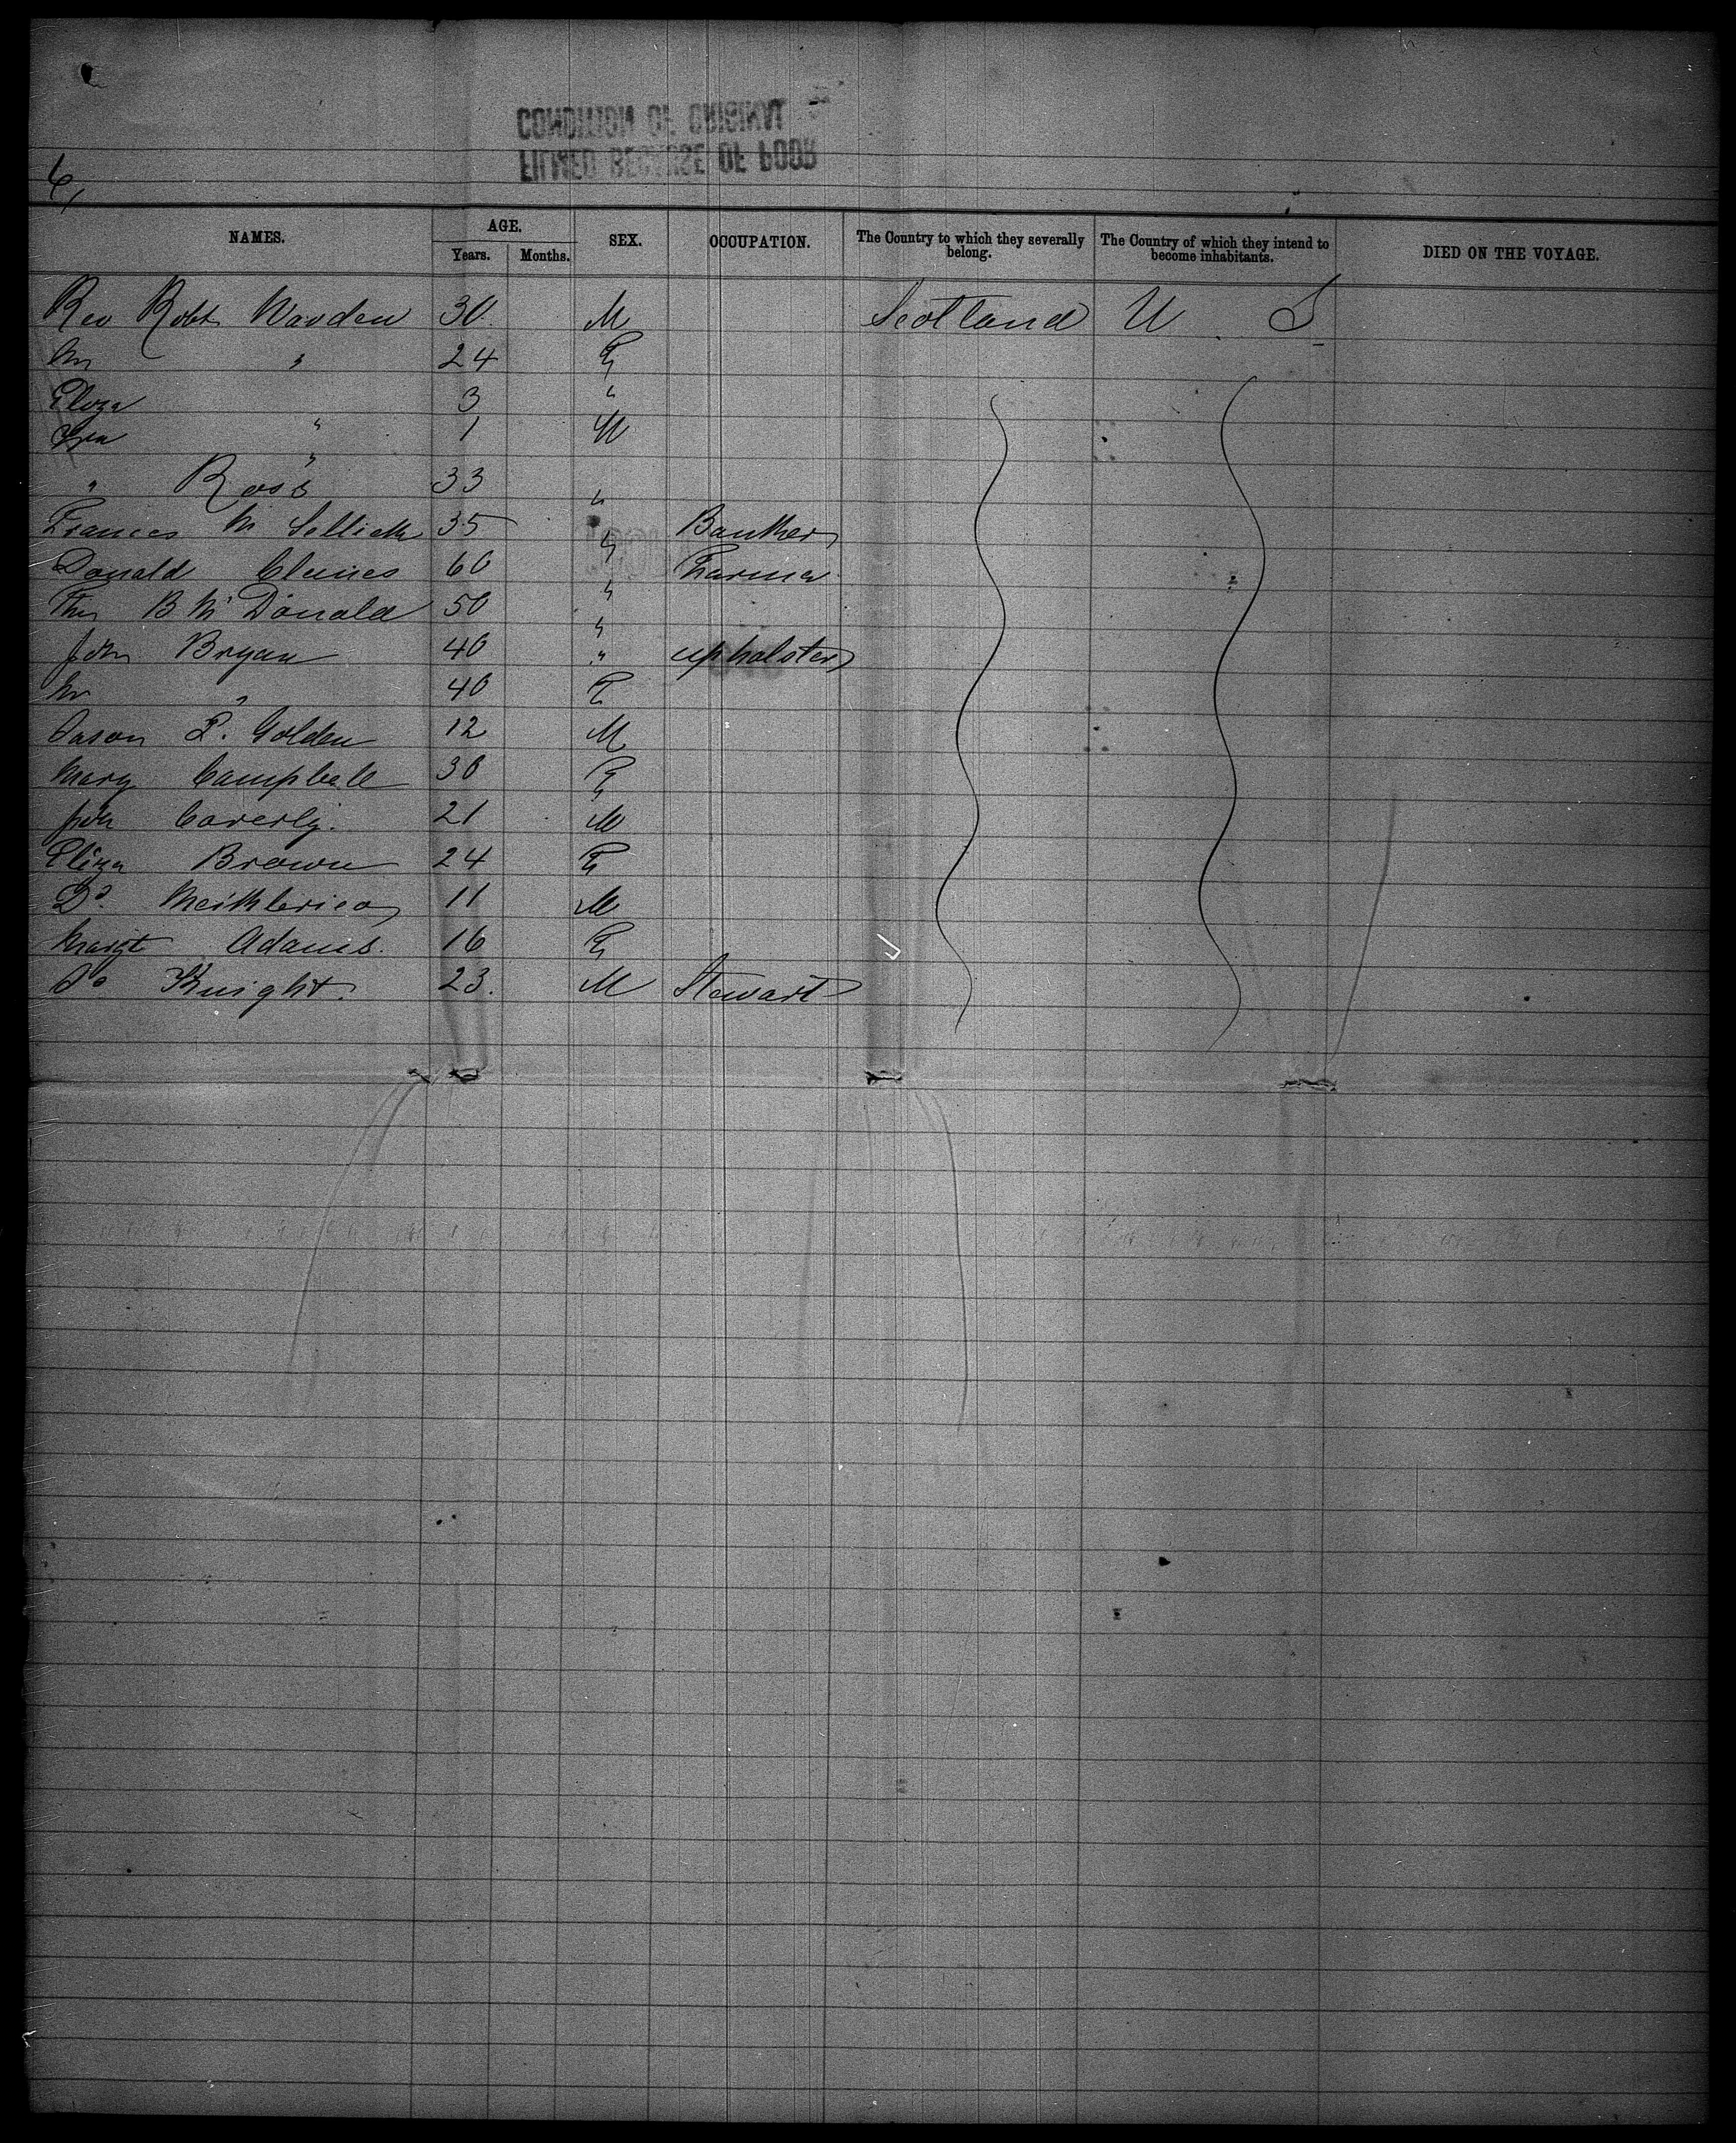 CONDITION OF ORIGINAL
FILMED BECAUSE OF POOR
6,
NAMES. AGE. SEX. OCCUPATION. The Country to which they severally belong. The Country of which they intend to become inhabitants. DIED ON THE VOYAGE.
Years. Months.
Rev Robt Warden 30. M Scotland U S
" 24 F
Eliza " 3 "
" 1 M
" Ross 33 "
Frances M 35 " Banker
Donald 60 " Farmer
Thos B McDonald 50 "
John Bryan 40 " upholster
" 40 F
P. Golden 12 M
Mary Campbell 30 F
John Caverly. 21 M
Eliza Brown 24 F
11 M
Margt Adams. 16 F
Knight. 23. M Stewart